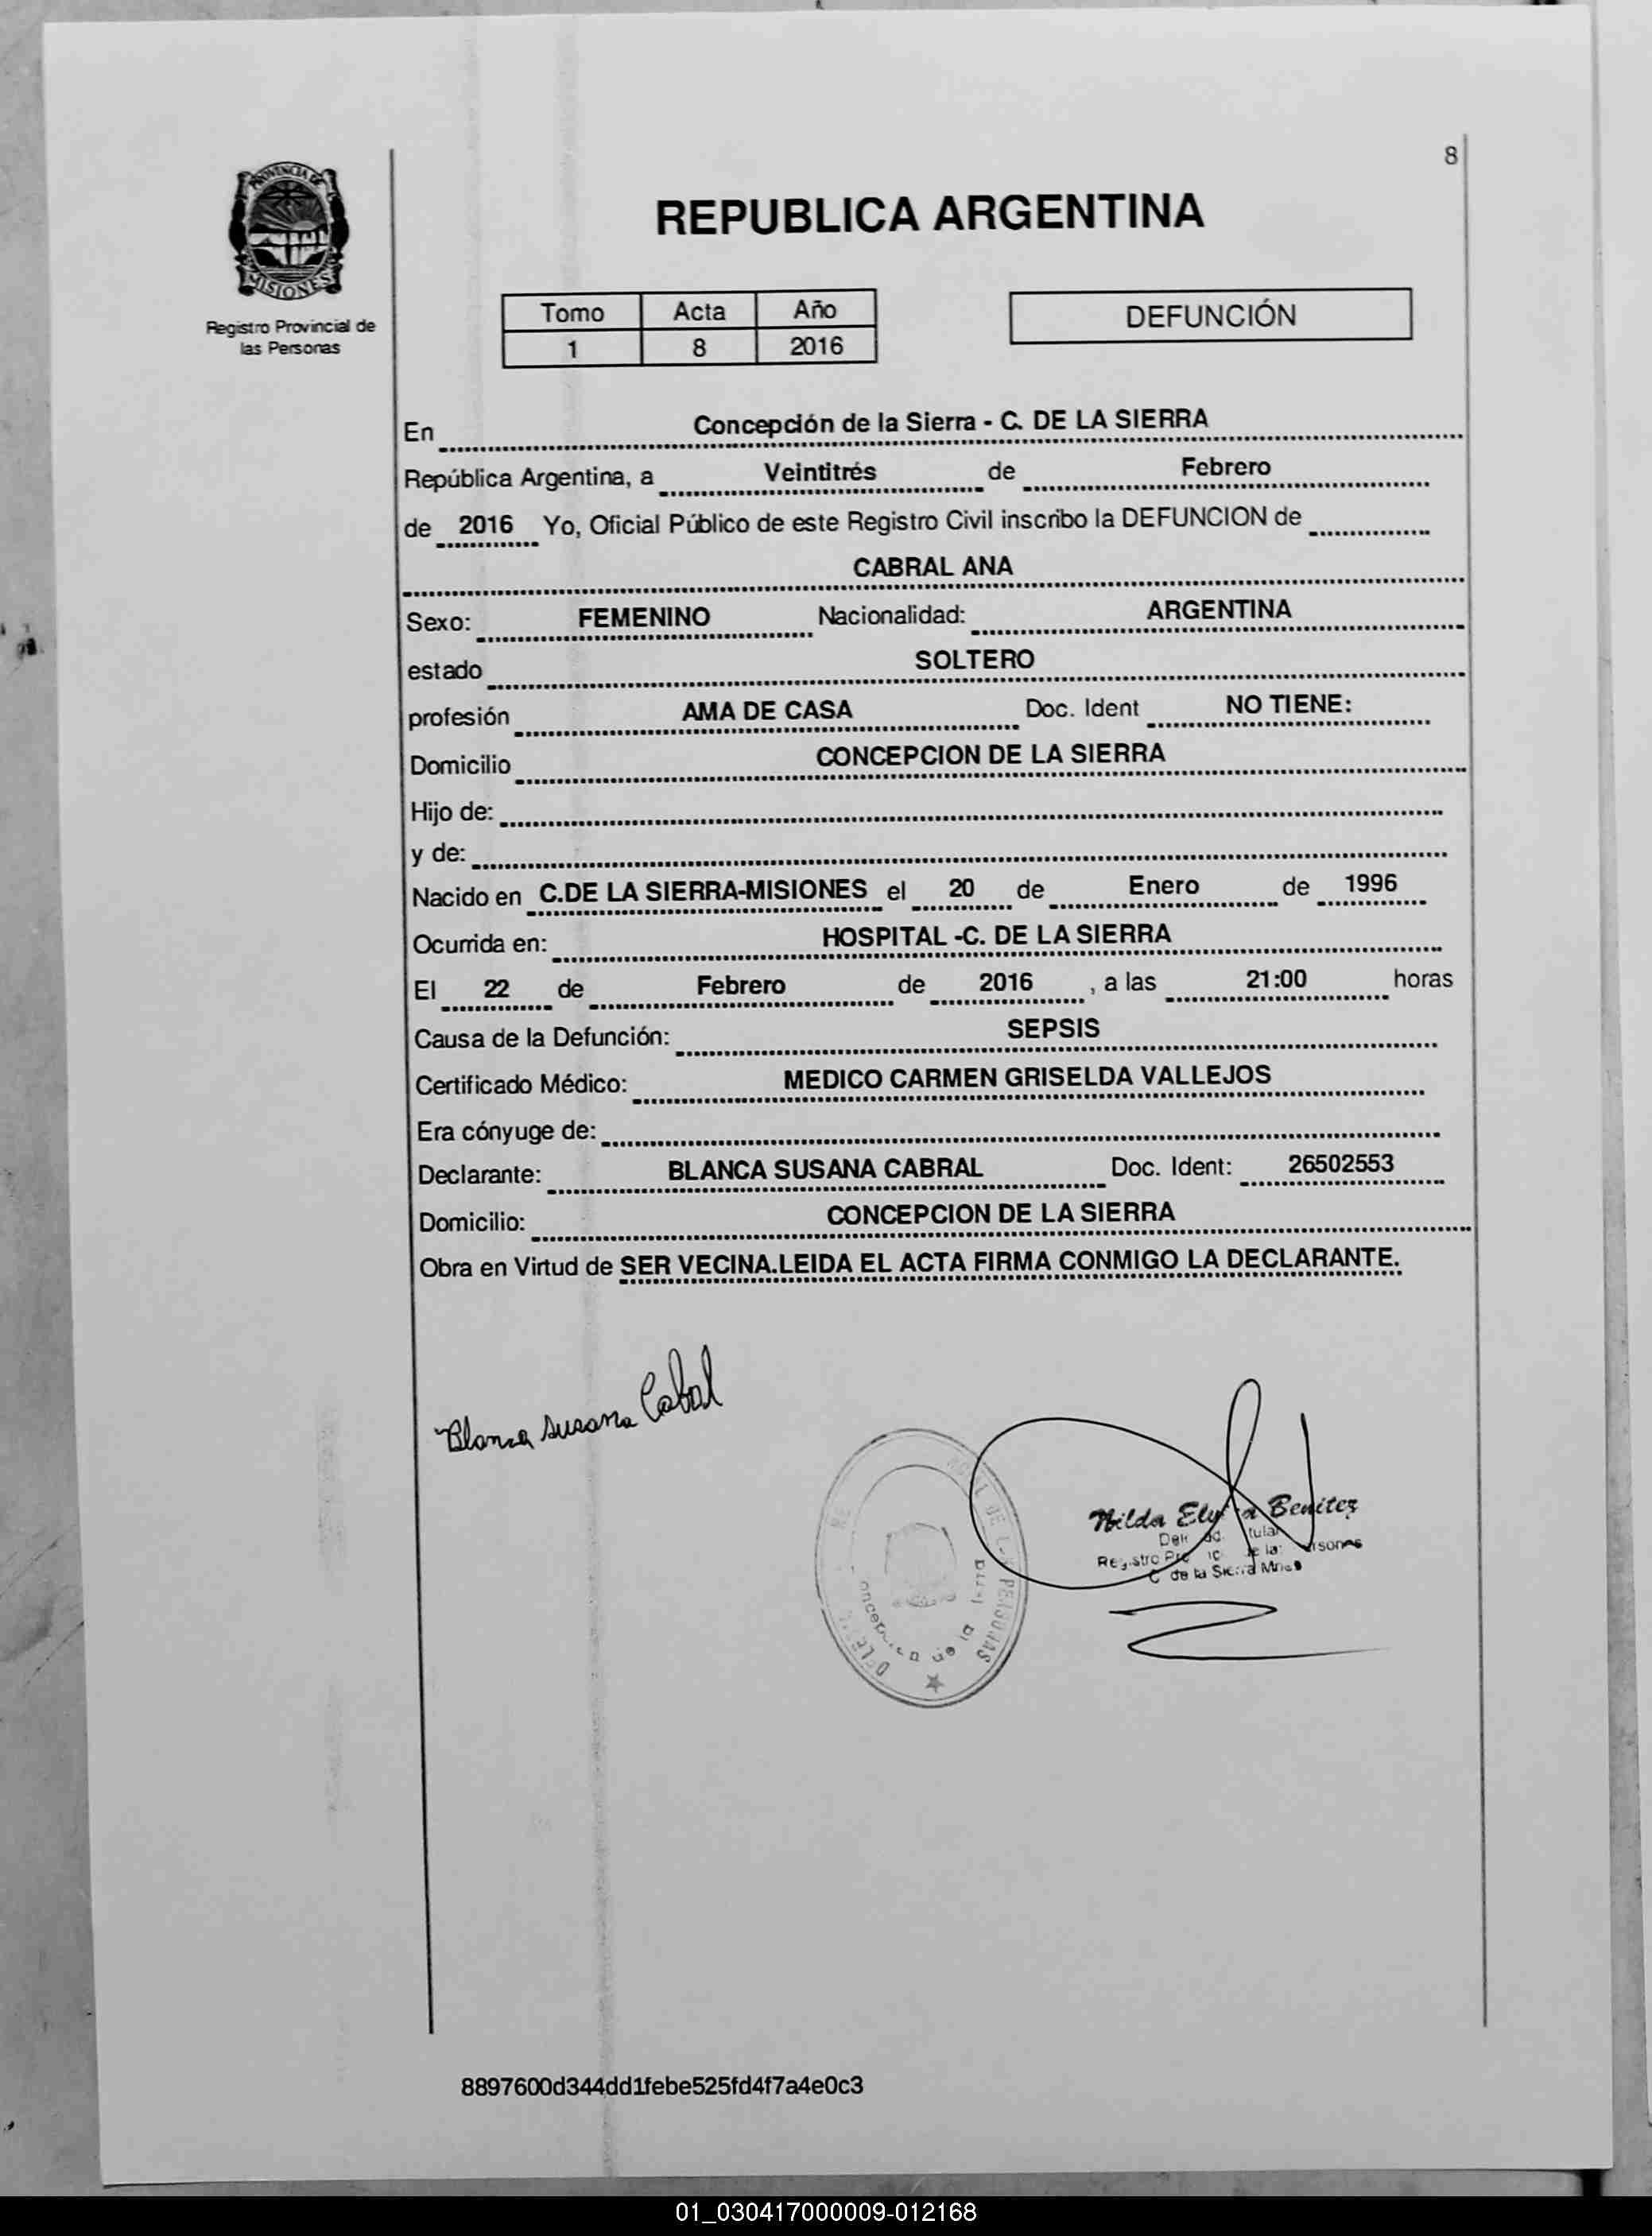 8
PROVINCIA DE
MISIONES
Registro Provincial de
las Personas
REPUBLICA ARGENTINA
Tomo Acta Año
1 8 2016
DEFUNCIÓN
En Concepción de la Sierra - C. DE LA SIERRA
República Argentina, a Veintitrés de Febrero
de 2016 Yo, Oficial Público de este Registro Civil inscribo la DEFUNCION de
CABRAL ANA
Sexo: FEMENINO Nacionalidad: ARGENTINA
estado SOLTERO
profesión AMA DE CASA Doc. Ident NO TIENE:
Domicilio CONCEPCION DE LA SIERRA
Hijo de:
y de:
Nacido en C.DE LA SIERRA-MISIONES el 20 de Enero de 1996
Ocurrida en: HOSPITAL -C. DE LA SIERRA
El 22 de Febrero de 2016 , a las 21:00 horas
Causa de la Defunción: SEPSIS
Certificado Médico: MEDICO CARMEN GRISELDA VALLEJOS
Era cónyuge de:
Declarante: BLANCA SUSANA CABRAL Doc. Ident: 26502553
Domicilio: CONCEPCION DE LA SIERRA
Obra en Virtud de SER VECINA.LEIDA EL ACTA FIRMA CONMIGO LA DECLARANTE.
Blanca Susana Cabral
Benitez
de la Sierra
8897600d344dd1febe525fd4f7a4e0c3
01_030417000009-012168